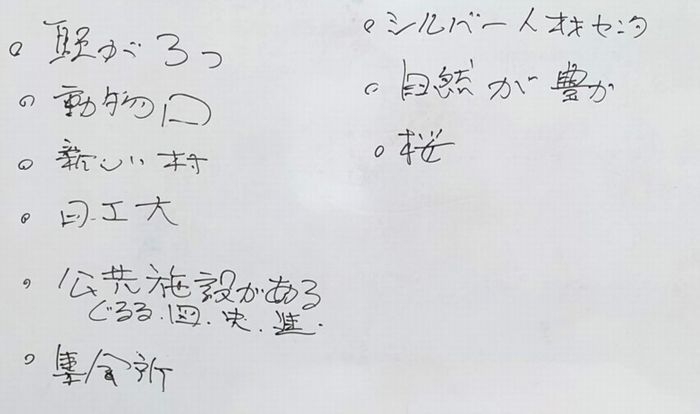 駅が3つ
動物口
新しい村
日工大
公共施設がある
ぐるる.図.史.進.
集会所
シルバー人材センタ
自然が豊か
桜